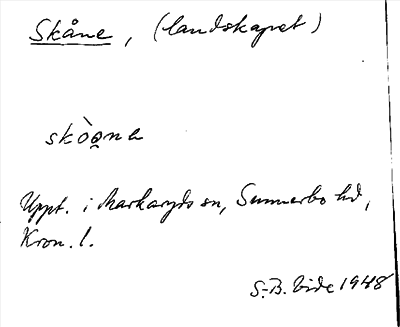 Skåne, (landskapet)
skòo̰na
Uppt. i Markaryds sn, Sunnerbo hd,
Kron. l.
S.-B. Vide 1948